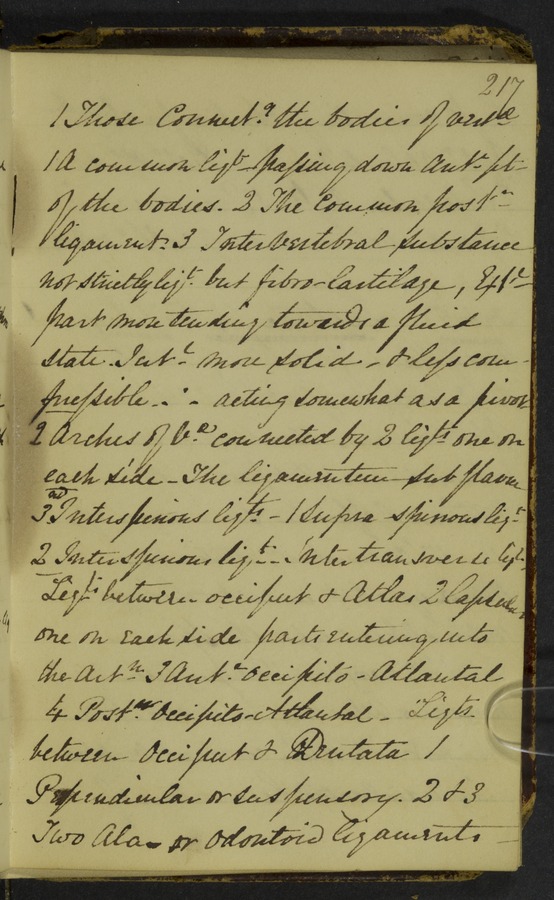 217
1 Those Connect.g the bodies of vertae
1 A common ligt passing down Antr pt
of the bodies. 2 The Common postrr
ligament. 3 Intervertebral substance
not strictly ligt. but fibro-Cartilage, Extl
part more tending towards a fluid
state. Intl more solid - & less com-
pressible ∴ acting somewhat as a pivot
2 Arches of Vae connected by 2 ligts one on
each side - The ligamentum subflava
3rd Interspinous ligts - 1 Supra spinous ligt
2 Interspinous ligt - Intertransverse ligt
Ligts between occiput & Atlas 2 Capsular
one on each side parts entering into
the Artn 3 Antr occipito-Atlantal
4 Postrr Occipito-Atlantal - Ligts
between Occiput & Dentata 1
Perpendicular or suspensory. 2 & 3
Two Alar or Odontoid ligaments